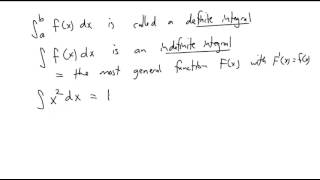 ∫ₐᵇ f(x) dx is called a definite integral
∫ f(x) dx is an indefinite integral
= the most general function F(x) with F'(x) = f(x)
∫ x² dx = 1